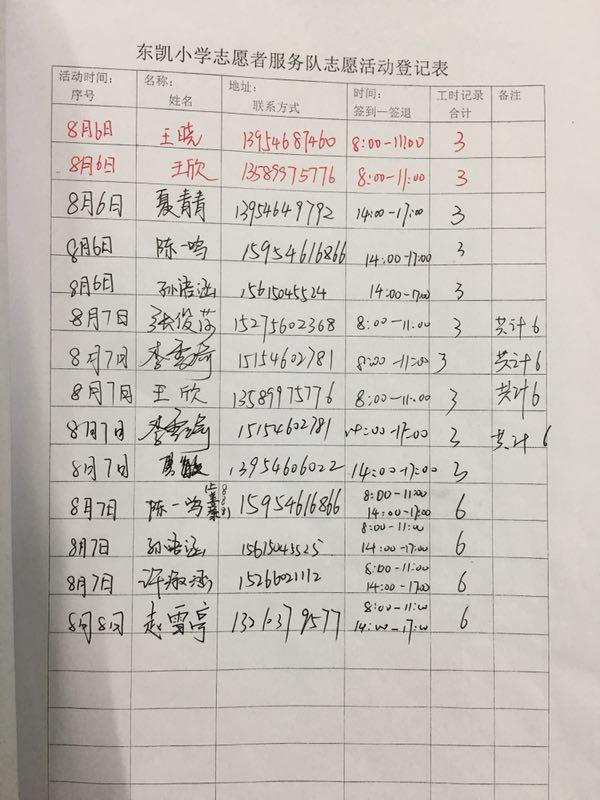 东凯小学志愿者服务队志愿活动登记表
活动时间： 名称： 地址： 时间： 工时记录 备注
序号 姓名 联系方式 签到—签退 合计
8月6日 王晓 13954687460 8:00-11:00 3
8月6日 王欣 13589975776 8:00-11:00 3
8月6日 夏青青 13954649792 14:00-17:00 3
8月6日 陈一鸣 15954616866 14:00-17:00 3
8月6日 孙语涵 15615045524 14:00-17:00 3
8月7日 张俊莎 15275602368 8:00-11:00 3 共计6
8月7日 李秀琦 15154602781 8:00-11:00 3 共计6
8月7日 王欣 13589975776 8:00-11:00 3 共计6
8月7日 李秀琦 15154602781 14:00-17:00 3 共计6
8月7日 13954606022 14:00-17:00 3
8月7日 陈一鸣 15954616866 8:00-11:00 14:00-17:00 6
8月7日 孙语涵 15615045525 8:00-11:00 14:00-17:00 6
8月7日 许淑涵 15266021112 8:00-11:00 14:00-17:00 6
8月8日 赵雪亭 13210379577 8:00-11:00 14:00-17:00 6